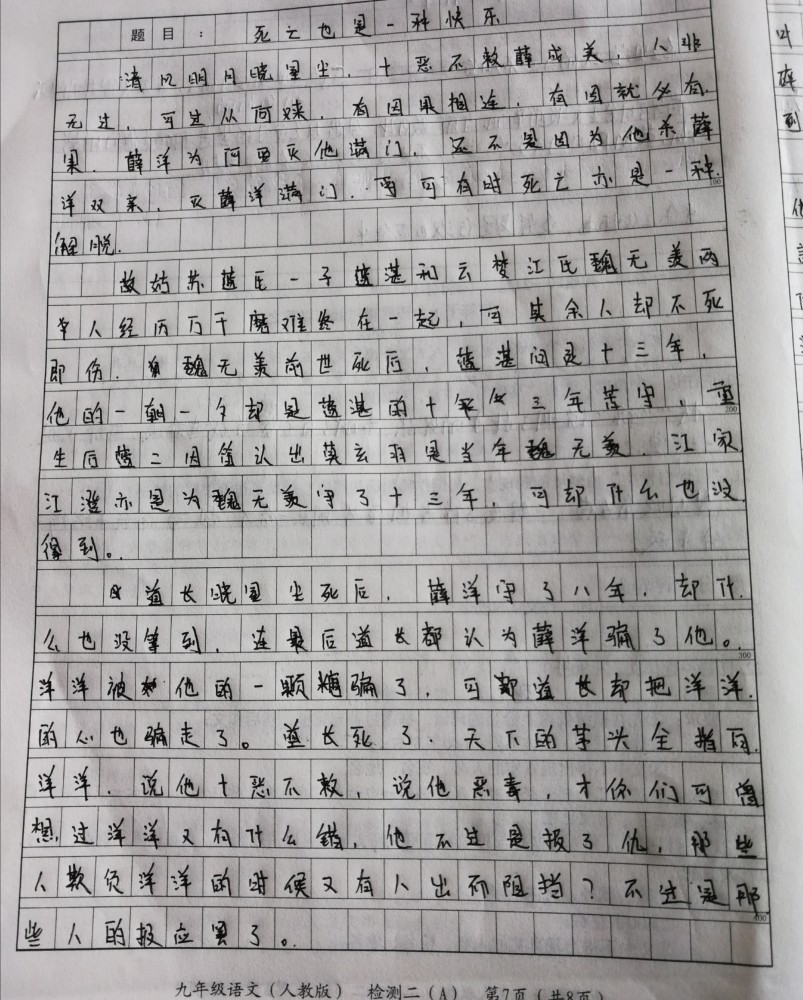 题目： 死亡也是一种快乐
清风明月晓星尘，十恶不赦薛成美，人非
无过，可过从何来，有因果相连，有因就必有
果．薛洋为何要灭他满门，还不是因为他杀薛
洋双亲，灭薛洋满门．可有时死亡亦是一种
100
解脱．
故姑苏蓝氏一子蓝湛和云梦江氏魏无羡两
人经历万千磨难终在一起，可其余人却不死
即伤．魏无羡前世死后，蓝湛问灵十三年，
他的一朝一夕却是蓝湛的十三年苦守，重
200
生后蓝二因笛认出莫玄羽是当年魏无羡．江家
江澄亦是为魏无羡守了十三年，可却什么也没
得到。
道长晓星尘死后，薛洋守了八年．却什
么也没等到，连最后道长都认为薛洋骗了他。
300
洋洋被他的一颗糖骗了，可道长却把洋洋
的心也骗走了。道长死了．天下的矛头全指向
洋洋．说他十恶不赦，说他恶毒，才你们可曾
想过洋洋又有什么错，他不过是报了仇，那些
人欺负洋洋的时候又有人出而阻挡？不过是那
400
些人的报应罢了。
叶
碎
到
他
九年级语文（人教版） 检测二（A） 第7页（共8页）